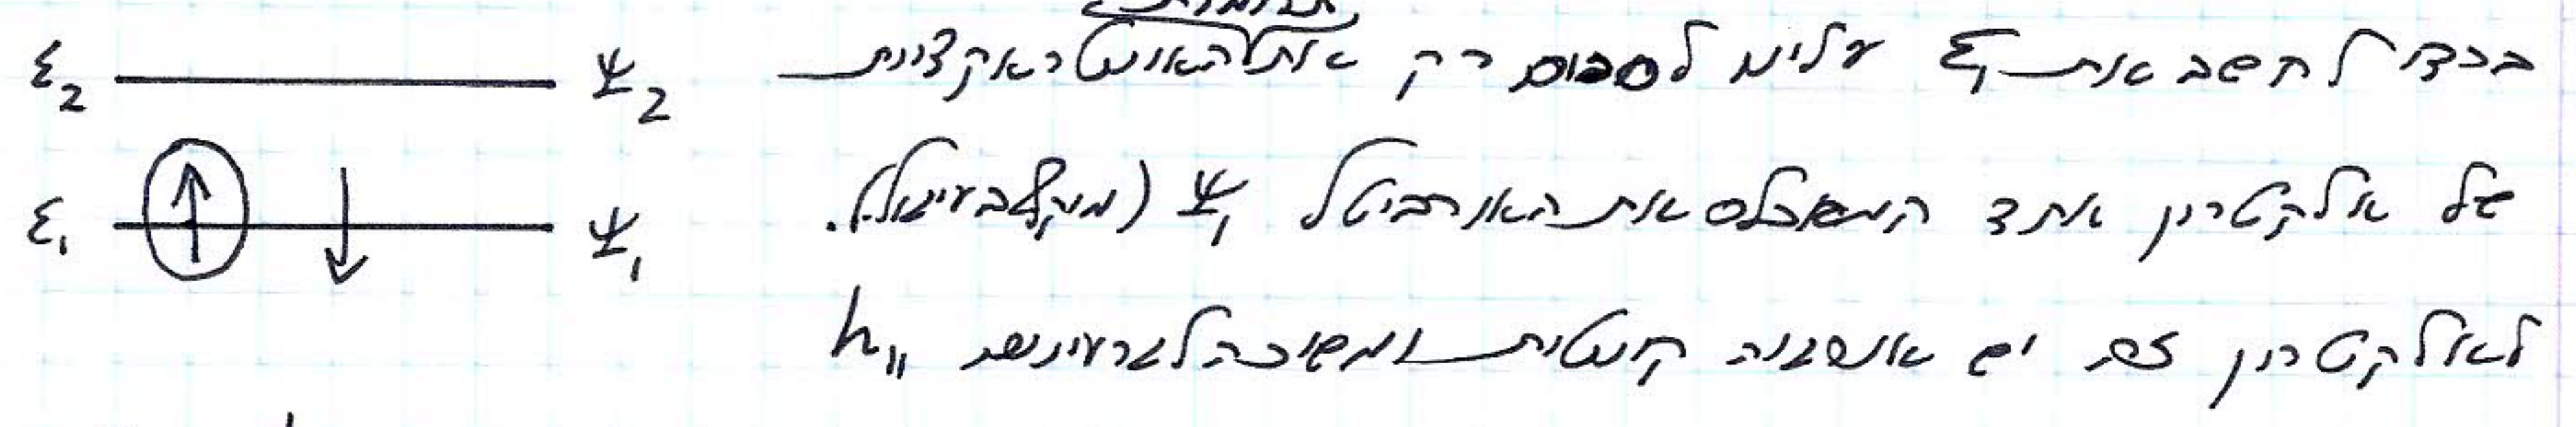 בכדי לחשב את ε₁ עלינו לסכום רק את האינטראקציות
של אלקטרון אחד המאכלס את האורביטל ψ₁ (מוקף בעיגול).
לאלקטרון זה יש אנרגיה קינטית ומשיכה לגרעינים h₁₁
ε₂ ψ₂
ε₁ ψ₁